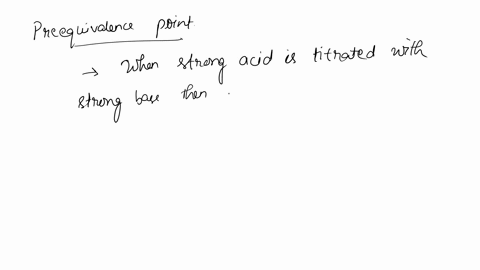 Preequivalence point
→ When strong acid is titrated with
strong base then .